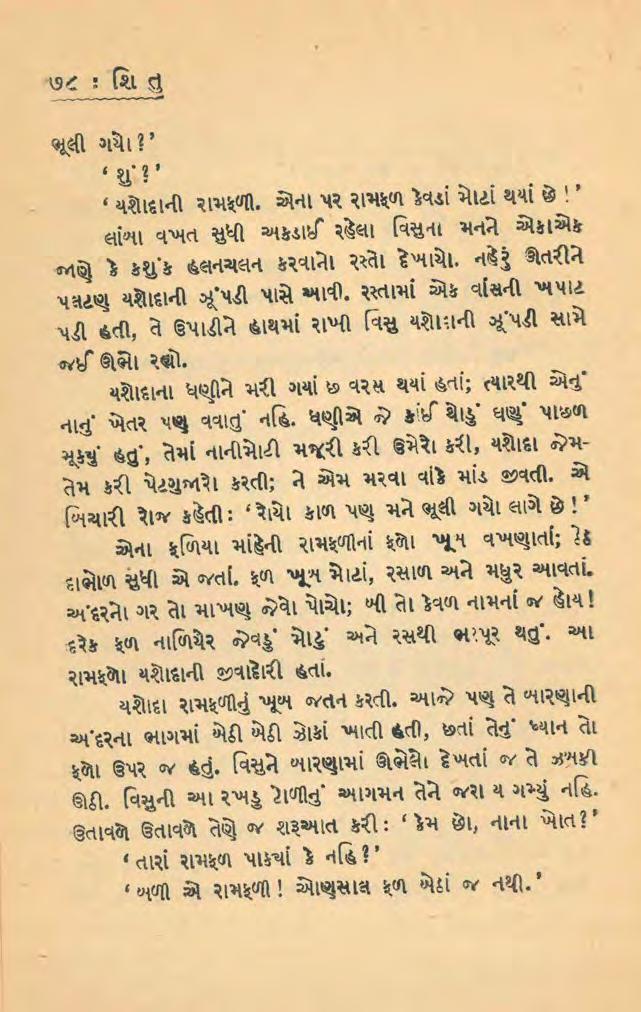 ૭૮ : શિ તુ
ભૂલી ગયો?’
‘શું?’
‘યશોદાની રામફળી. એના પર રામફળ કેવડાં મોટાં થયાં છે!’
લાંબા વખત સુધી અકડાઈ રહેલા વિસુના મનને એકાએક
જાણે કે કશુંક હલનચલન કરવાનો રસ્તો દેખાયો. નહેરું ઊતરીને
પલટણ યશોદાની ઝૂંપડી પાસે આવી. રસ્તામાં એક વાંસની ખપાટ
પડી હતી, તે ઉપાડીને હાથમાં રાખી વિસુ યશોદાની ઝૂંપડી સામે
જઈ ઊભો રહ્યો.
યશોદાના ધણીને મરી ગયાં છ વરસ થયાં હતાં; ત્યારથી એનું
નાનું ખેતર પણ વવાતું નહિ. ધણીએ જે કાંઈ થોડું ઘણું પાછળ
મૂક્યું હતું, તેમાં નાનીમોટી મજૂરી કરી ઉમેરો કરી, યશોદા જેમ-
તેમ કરી પેટગુજારો કરતી; ને એમ મરવા વાંકે માંડ જીવતી. એ
બિચારી રોજ કહેતી: ‘રોયો કાળ પણ મને ભૂલી ગયો લાગે છે!’
એના ફળિયા માંહેની રામફળીનાં ફળો ખૂબ વખણાતાં; ઠેઠ
દાભોળ સુધી એ જતાં. ફળ ખૂબ મોટાં, રસાળ અને મધુર આવતાં.
અંદરનો ગર તો માખણ જેવો પોચો; બી તો કેવળ નામનાં જ હોય!
દરેક ફળ નાળિયેર જેવડું મોટું અને રસથી ભરપૂર થતું. આ
રામફળો યશોદાની જીવાદોરી હતાં.
યશોદા રામફળીનું ખૂબ જતન કરતી. આજે પણ તે બારણાની
અંદરના ભાગમાં બેઠી બેઠી ઝોકાં ખાતી હતી, છતાં તેનું ધ્યાન તો
ફળો ઉપર જ હતું. વિસુને બારણામાં ઊભેલો દેખતાં જ તે ઝબકી
ઊઠી. વિસુની આ રખડુ ટોળીનું આગમન તેને જરા ય ગમ્યું નહિ.
ઉતાવળે ઉતાવળે તેણે જ શરૂઆત કરી: ‘કેમ છો, નાના ખોત?’
‘તારાં રામફળ પાક્યાં કે નહિ?’
‘બળી એ રામફળી! ઓણસાલ ફળ બેઠાં જ નથી.’